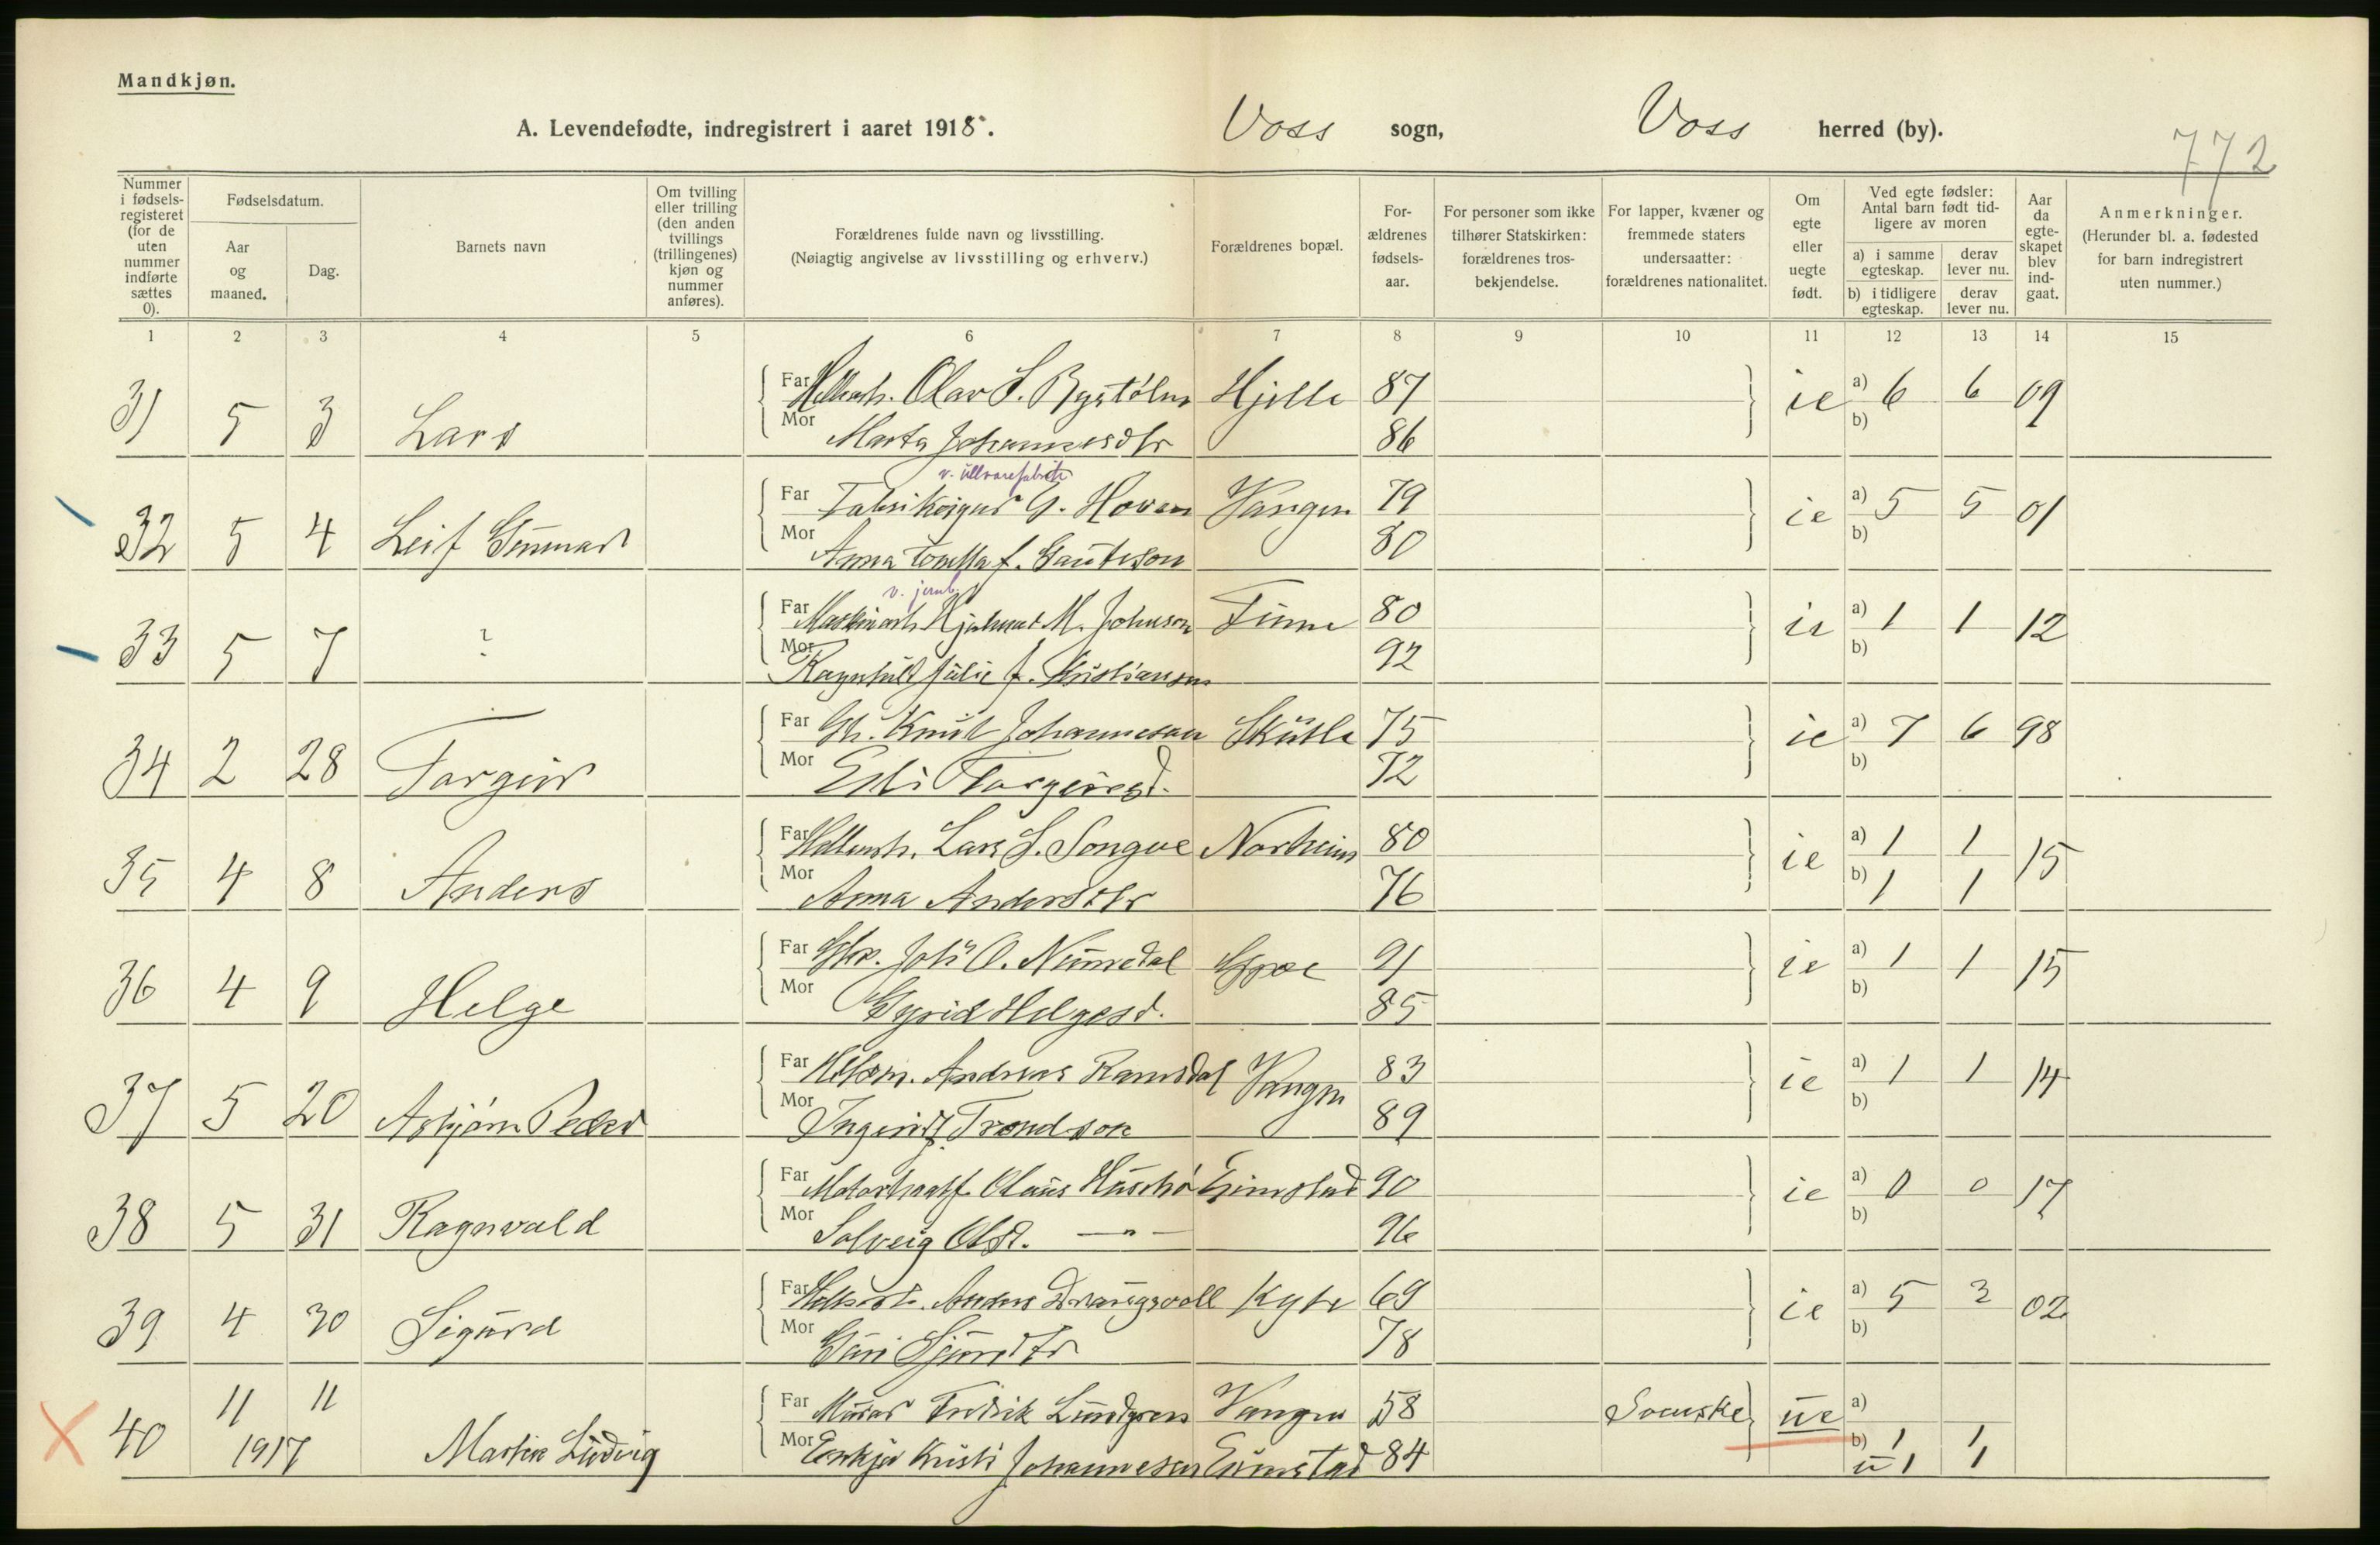 Mandkjøn.
A. Levendefødte, indregistrert i aaret 1918. Voss sogn, Voss herred (by).
772
Nummer i fødselsregisteret (for de uten nummer indførte sættes 0).
Fødselsdatum.
Aar og maaned.
Dag.
Barnets navn
Om tvilling eller trilling (den anden tvillings (trillingenes) kjøn og nummer anføres).
Forældrenes fulde navn og livsstilling.
(Nøiagtig angivelse av livsstilling og erhverv.)
Forældrenes bopæl.
Forældrenes fødselsaar.
For personer som ikke tilhører Statskirken: forældrenes trosbekjendelse.
For lapper, kvæner og fremmede staters undersaatter: forældrenes nationalitet.
Om egte eller uegte født.
Ved egte fødsler: Antal barn født tidligere av moren
a) i samme egteskap. derav lever nu.
b) i tidligere egteskap. derav lever nu.
Aar da egteskapet blev indgaat.
Anmerkninger.
(Herunder bl. a. fødested for barn indregistrert uten nummer.)
1 2 3 4 5 6 7 8 9 10 11 12 13 14 15
Far Olav L. Bystølen Hjelle 87 a) 6 6 09
31 5 3 Lars ie
Mor Marta Johannesdtr 86 b)
v. ullvarefabrik
Far G. Hoven Vangen 79 a) 5 5 01
32 5 4 Leif Gunnar ie
Mor Anna f. Gauteson 80 b)
v. jernb.
Far Hjalmar M. Johnson Finne 80 a) 1 1 12
33 5 7 ? ie
Mor Ragnhild Julie f. Kristiansen 92 b)
Far Gb. Knut Johanneson Skutle 75 a) 7 6 98
34 2 28 Torgeir ie
Mor Eli Torgeirsd. 72 b)
Far Lars L. Songve Norheim 80 a) 1 1 15
35 4 8 Anders ie
Mor Anna Andersdtr 76 b) 1 1
Far Joh O. Nummedal 91 a) 1 1 15
36 4 9 Helge ie
Mor Gyrid Helgesd. 85 b)
Far Andreas Ramsdal Vangen 83 a) 1 1 14
37 5 20 Asbjørn Peder ie
Mor Ingerid f. Trondson 89 b)
Far Olaus Gimstad 90 a) 0 0 17
38 5 31 Ragnvald ie
Mor Solveig Olsd. — " — 96 b)
Far Anders Kyte 69 a) 5 3 02
39 4 30 Sigurd ie
Mor Guri 78 b)
11 11 Far Murer Fredrik Lundgren Vangen 58 Svenske ue a)
40 1917 Martin Ludvig
Mor Enkja Kristi Johannesen Gimstad 84 b) 1 1
u 1 1